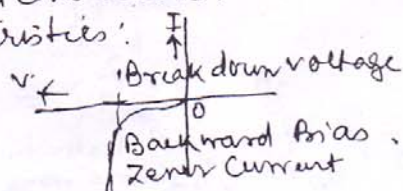 eristics:
I
V
Break down voltage
O
Backward Bias.
Zener Current